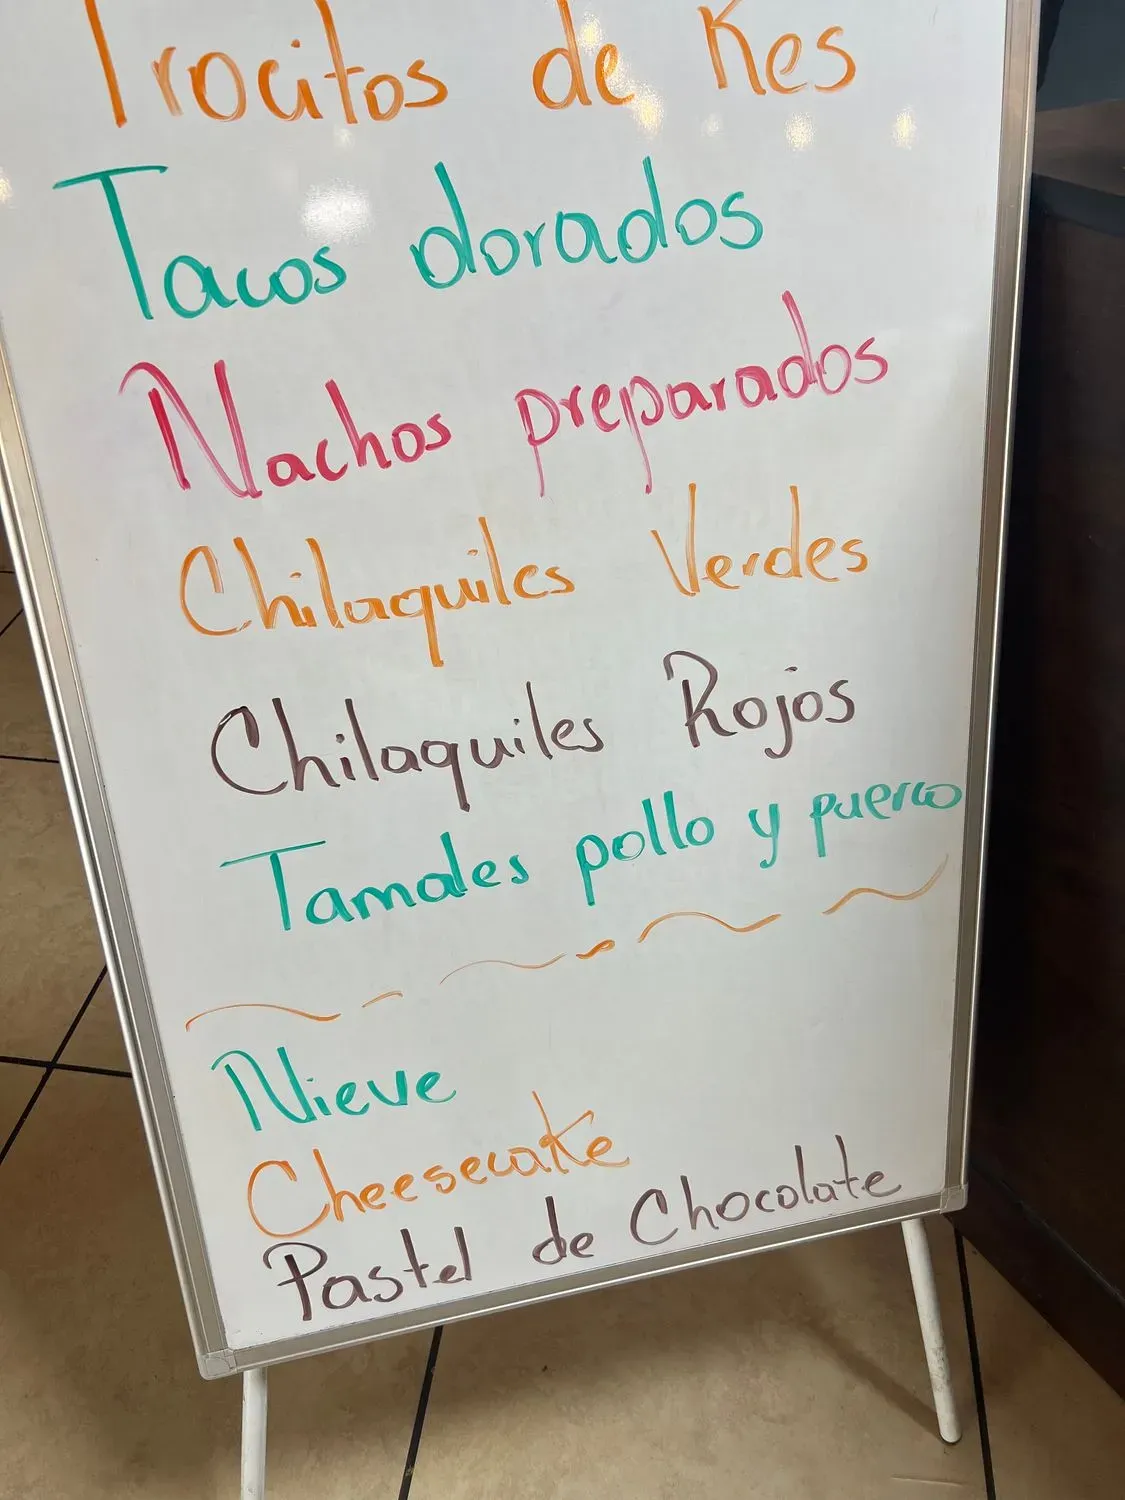 Trocitos de Res
Tacos dorados
Nachos preparados
Chilaquiles Verdes
Chilaquiles Rojos
Tamales pollo y puerco
Nieve
Cheesecake
Pastel de Chocolate